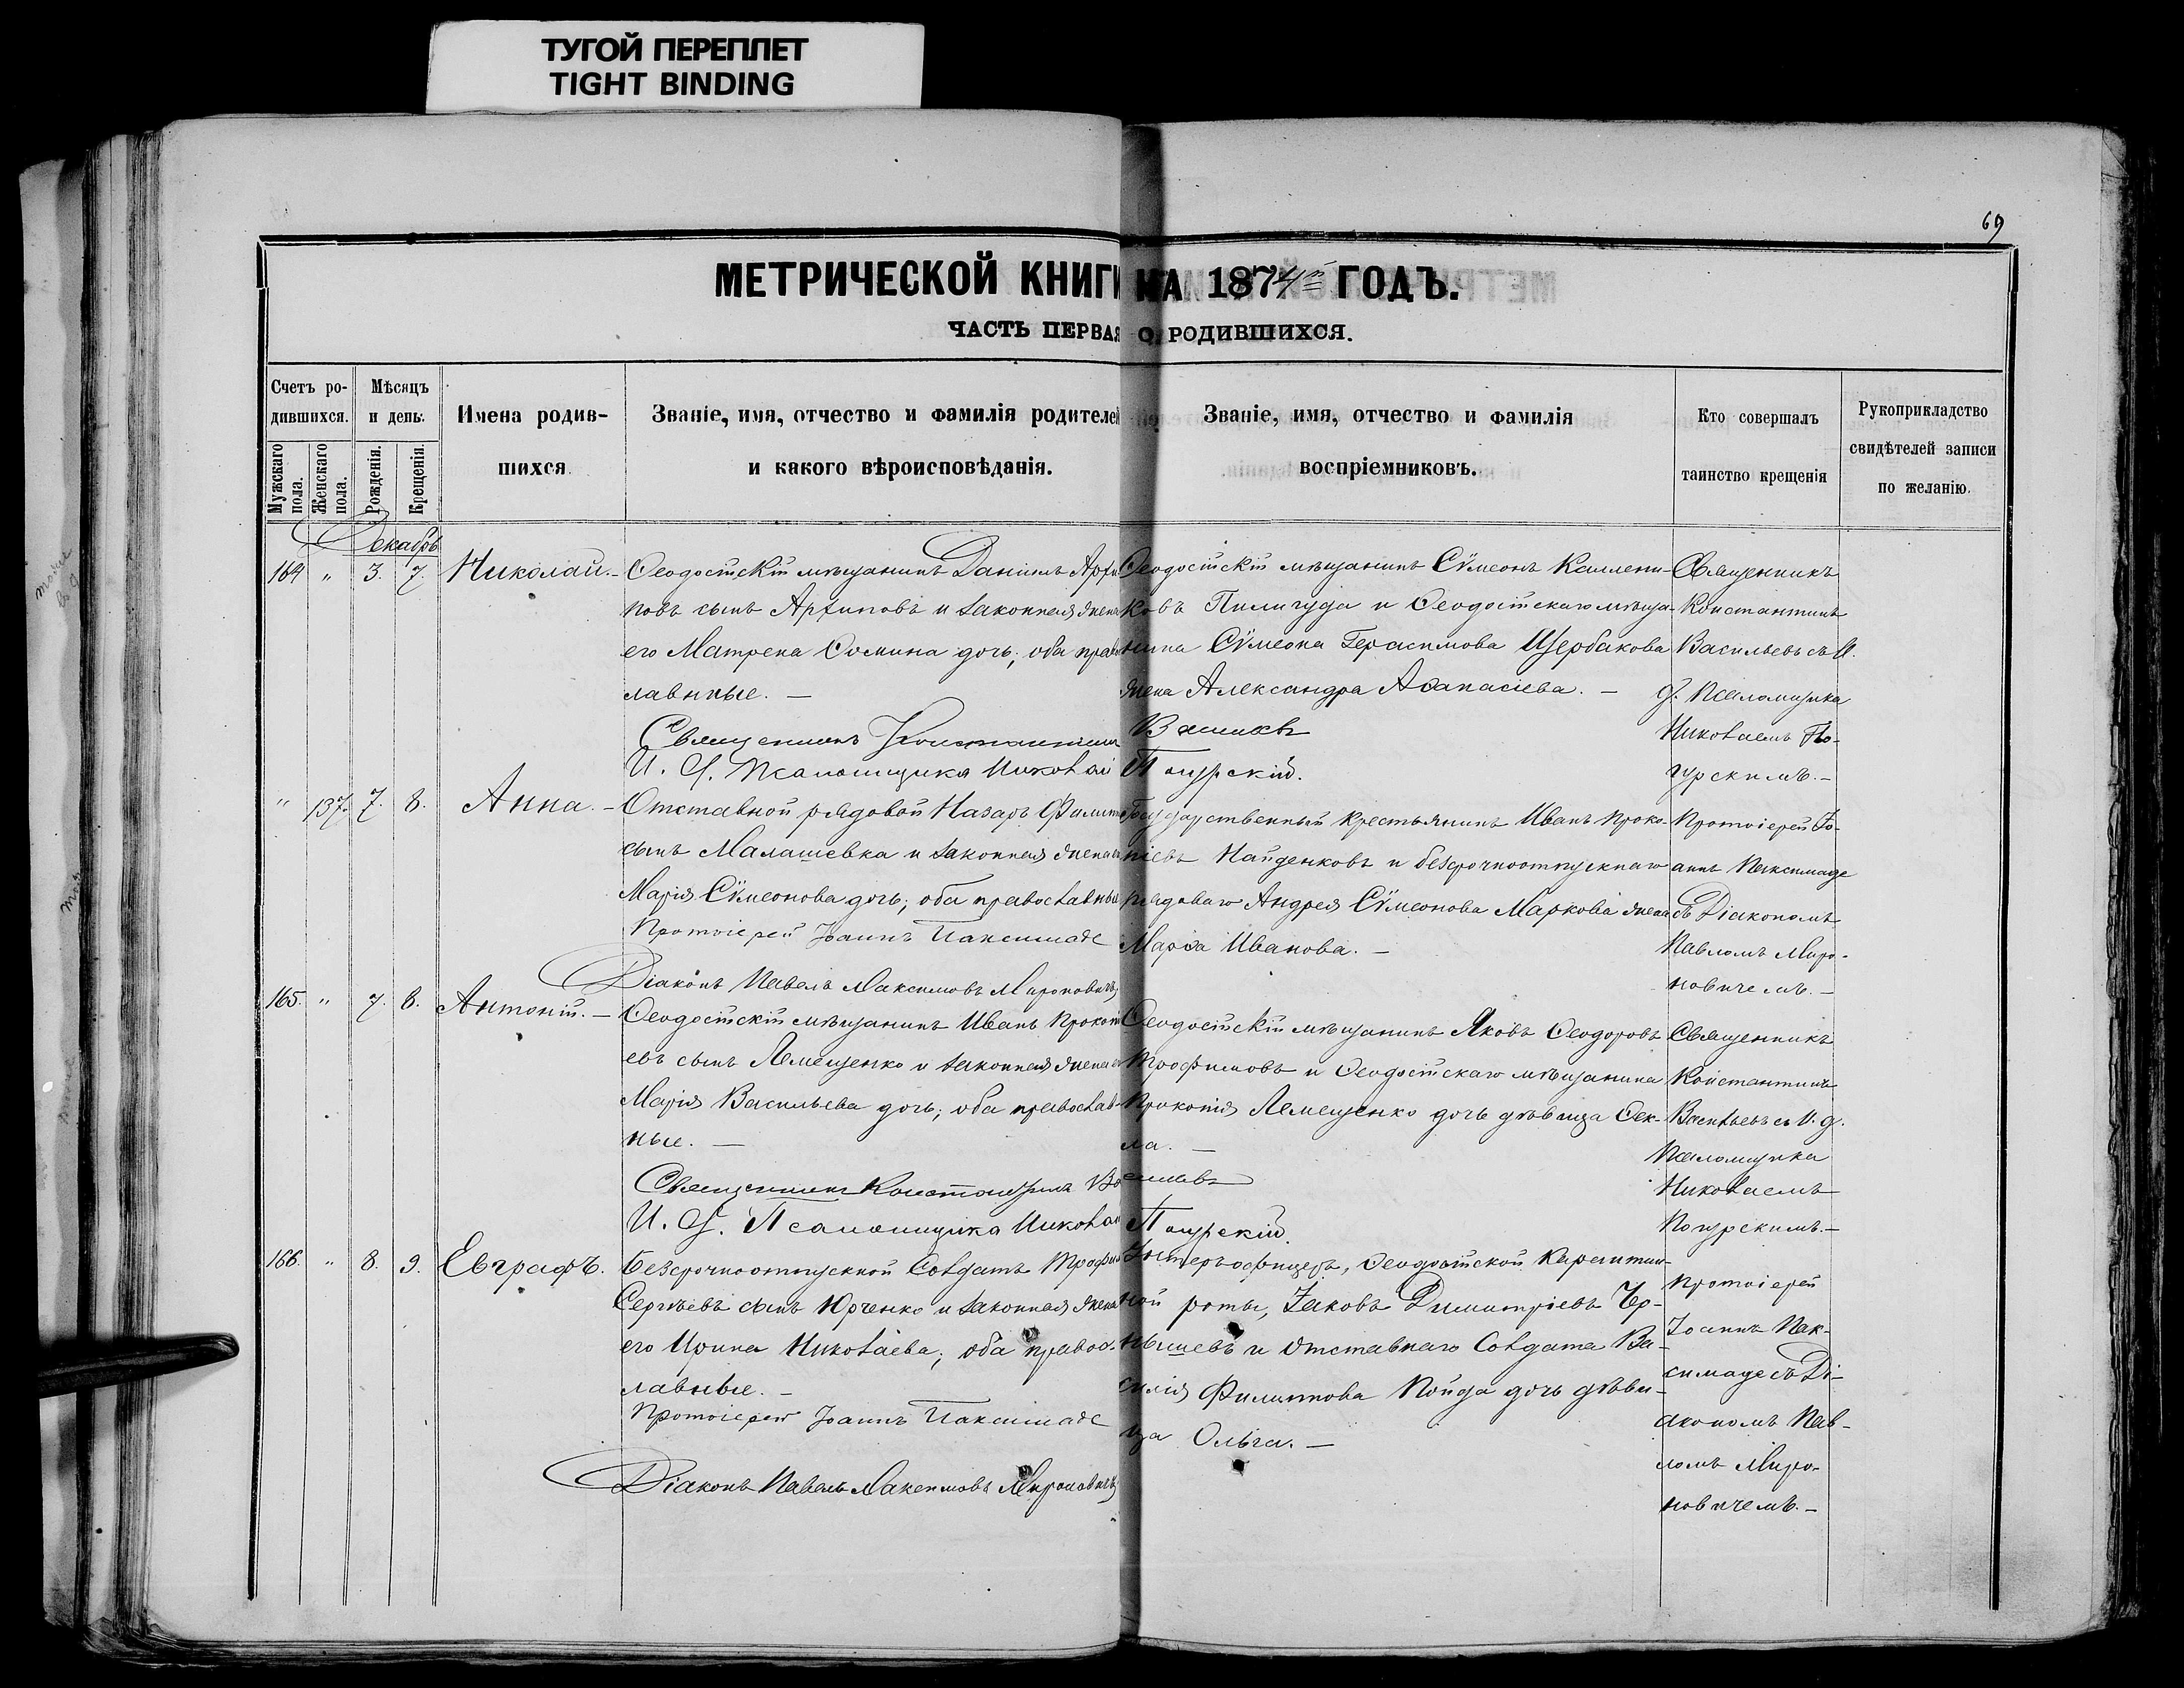 ТУГОЙ ПЕРЕПЛЕТ
TIGHT BINDING
69
МЕТРИЧЕСКОЙ КНИГИ НА 1874й ГОДЪ.
ЧАСТЬ ПЕРВАЯ О РОДИВШИХСЯ.
Счетъ ро-
дившихся.
Мужскаго
пола.
Женскаго
пола.
Мѣсяцъ
и день.
Рожденія.
Крещенія.
Имена родив-
шихся
Званіе, имя, отчество и фамилія родителей
и какого вѣроисповѣданія.
Званіе, имя, отчество и фамилія
воспріемниковъ.
Кто совершалъ
таинство крещенія
Рукоприкладство
свидѣтелей записи
по желанію.
Декабрь
164 " 3. 7. Николай.—
Ѳеодосійскій мѣщанинъ Даніилъ Архи
повъ сынъ Архиповъ и законная жена
его Матрена Ѳомина дочь; оба правос
лавные. —
Священникъ Константинъ
И. Д. Псаломщика Николай
Ѳеодосійскій мѣщанинъ Сѵмеонъ Каллени-
ковъ Пилигуда и Ѳеодосійскаго мѣща-
нина Сѵмеона Герасимова Щербакова
жена Александра Аѳанасіева. —
Погурскій.
Священникъ
Константинъ
Васильевъ съ И.
д. Псаломщика
Николаемъ По-
гурскимъ. —
" 137. 7. 8. Анна. —
Отставной рядовой Назаръ Филип
сынъ Малашевка и законная жена его
Марія Сѵмеонова дочь; оба православные
Протоіерей Іоаннъ Паксимаде
Діаконъ Павелъ Максимовъ Мироновичъ
Государственный крестьянинъ Иванъ Проко-
піевъ Найденковъ и безсрочноотпускнаго
рядоваго Андрея Сѵмеонова Маркова жена
Марѳа Иванова. —
Протоіерей Іо-
аннъ Паксимаде
съ Діакономъ
Павломъ Миро-
новичемъ. —
165. " 7. 8. Антоній. —
Ѳеодосійскій мѣщанинъ Иванъ Прокопі
евъ сынъ Лемещенко и законная жена его
Марія Васильева дочь; оба православ-
ные. —
Священникъ Константинъ
И. Д. Псаломщика Николай
Ѳеодосійскій мѣщанинъ Яковъ Ѳеодоровъ
Трофимовъ и Ѳеодосійскаго мѣщанина
Прокопія Лемещенко дочь дѣвица Ѳек-
ла. —
Погурскій.
Священникъ
Константинъ
Васильевъ съ И. д.
Псаломщика
Николаемъ
Погурскимъ. —
166. " 8. 9. Евграфъ.
Безсрочноотпускной Солдатъ Трофим
Сергѣевъ сынъ Юрченко и законная жена
его Ирина Николаева; оба правос-
лавные. —
Протоіерей Іоаннъ Паксимаде
Діаконъ Павелъ Максимовъ Мироновичъ
Унтеръ-офицеръ, Ѳеодосійской Карантин-
ной роты, Іаковъ Димитріевъ Чер-
нышевъ и отставнаго Солдата Ва-
силія Филиппова Пойда дочь дѣви-
ца Ольга. —
Протоіерей
Іоаннъ Пак-
симаде съ Ді-
акономъ Пав-
ломъ Миро-
новичемъ. —